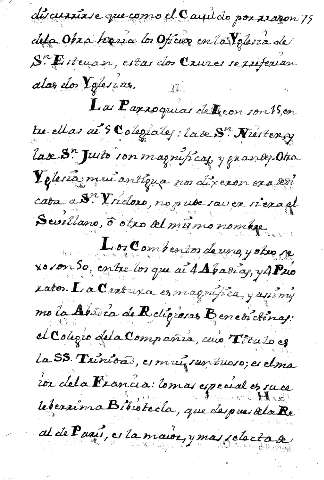 discurrirse que como el Cavildo por razon 75
de la Obra hacia los Oficios en la Yglesia de
Sn. Estevan, estas dos Cruces se referian
a las dos Yglesias.
Las Parroquias de Leon son 15, en
tre ellas ai 5 Colegiales: la de Sn. Niester, y
la de Sn. Justo son magnificas, y grandes. Otra
Yglesia mui antigua nos dixeron era dedi
cada a Sn. Ysidoro, no pude saver si era el
Sevillano, ô otro del mismo nombre.
Los Combentos de uno, y otro se
xo son 50, entre los que ai 4 Abadias, y 4 Prio
ratos. La Cartuxa es magnifica, y assimis
mo la Abadia de Religiosas Benedictinas:
el Colegio de la Compañia, cuio Titulo es
la SS. Trinidad, es mui suntuoso; es el ma
ior de la Francia: lo mas especial es su ce
leberrima Biblioteca, que despues de la Re
al de Paris, es la maior, y mas selecta de